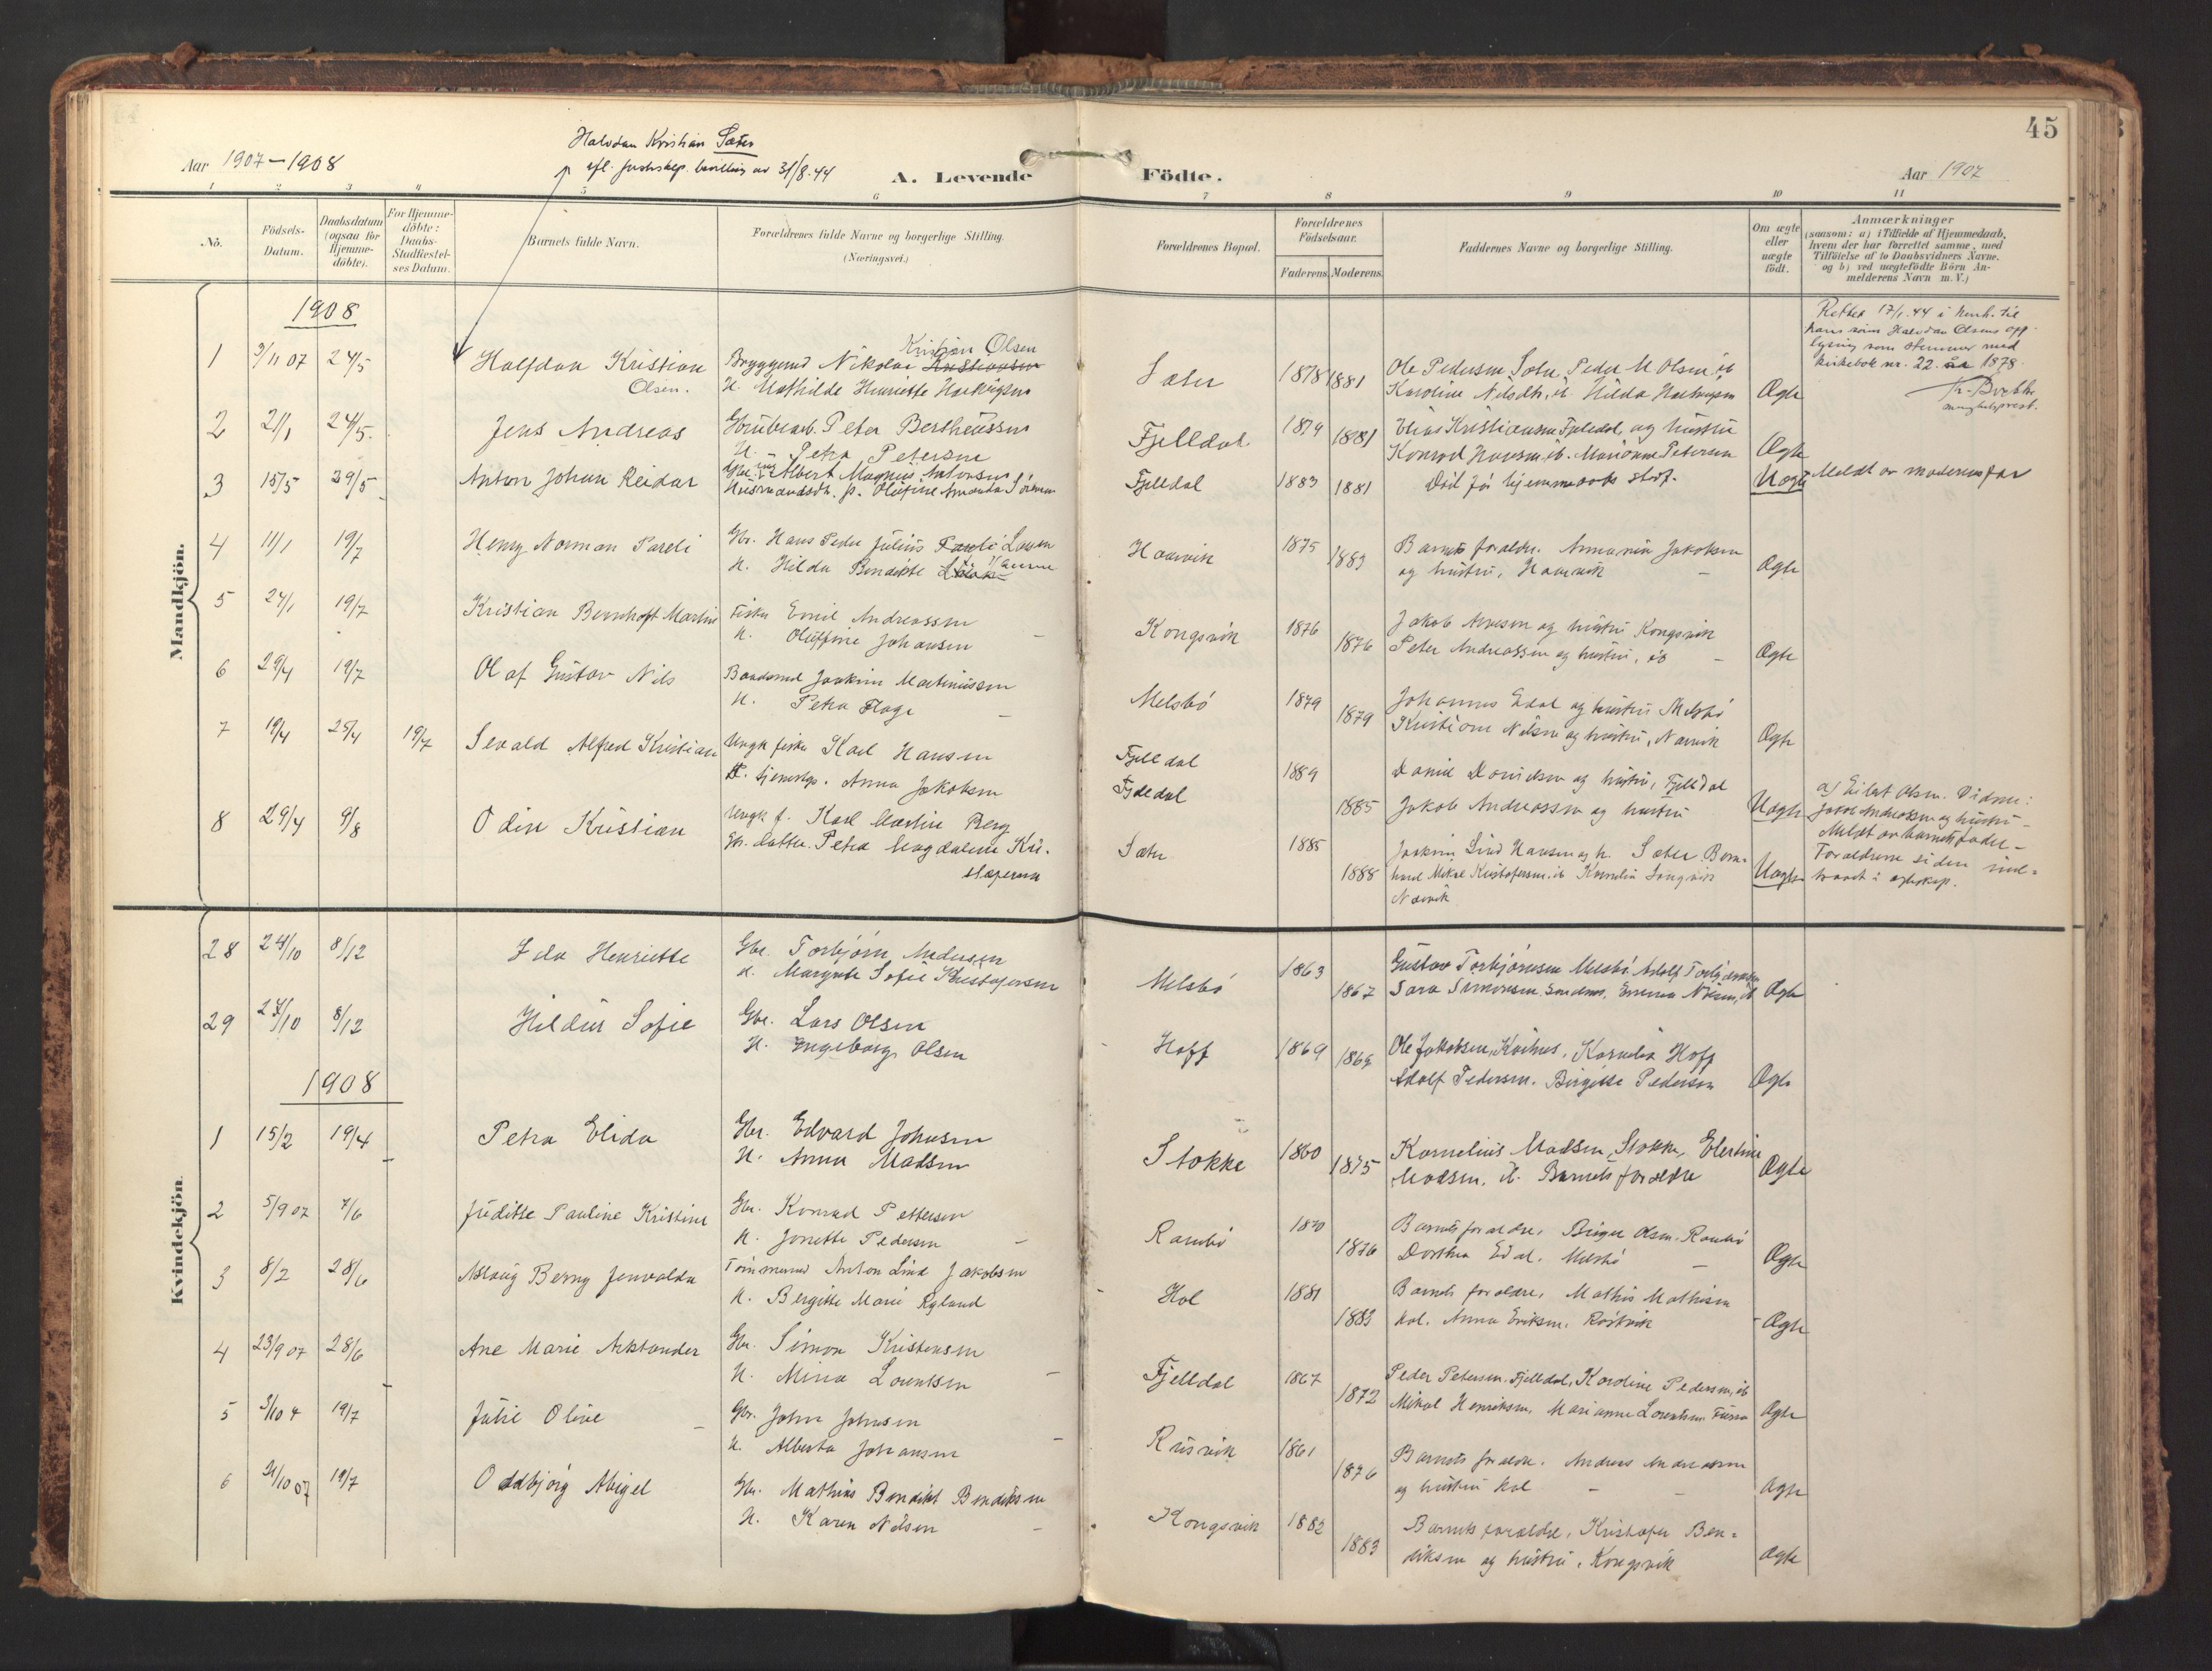 45
Halvdan Kristian Sæter
efl. bevilling av 31/8.44
Aar 1907-1908
A. Levende Födte.
Aar 1907
1 2 3 4 5 6 7 8 9 10 11
No.
Födsels-Datum.
Daabsdatum (ogsaa for Hjemme-döbte).
For Hjemme-döbte: Daabs-Stadfæstel-ses Datum.
Barnets fulde Navn.
Forældrenes fulde Navne og borgerlige Stilling. (Næringsvei.)
Forældrenes Bopæl.
Forældrenes Födselsaar.
Faderens. Moderens.
Faddernes Navne og borgerlige Stilling.
Om ægte eller uægte födt.
Anmærkninger
(saasom: a) i Tilfælde af Hjemmedaab, hvem der har forrettet samme, med Tilföielse af to Daabsvidners Navne. og b) ved uægtefödte Börn An-melderens Navn m. V.)
Mandkjön.
1908
1 3/11 07 24/5 Halfdan Kristian Olsen. Bryggemd Nikolai Kristian Olsen
H. Mathilde Henriette
Sæter 1878 1881 Ole Pedersen Sæter, Peder M Olsen ib
Karoline Nilsdtr. ib. Hilda Ægte
Rettet 17/1.44 i henh. til
hans sønn Halvdan Olsens opp-
lysning som stemmer med
kirkebok nr. 22. år 1878.
2 21/1 24/5. Jens Andreas Grubearb. Peter Bertheussen
H. Petra Petersen
Fjelldal 1879 1881 Elias Kristiansen Fjelldal, og hustru
Konrad Hansen, ib. Marianne Petersen Ægte
3 15/5 29/5 Anton Johan Reidar Albert Magnus Antonsen
Husmandsdtr. p. Olufine Amanda Sörensen
Fjelldal 1883 1881 Död för hjemmedaabs stadf. Uægte Meldt av moderens far
4 11/1 19/7 Henry Norman Pareli Gbr. Hans Peder Julius Pareli Larsen
H. Hilda Bendikte
Haarvik 1875 1883 Barnets foraldre. Annanias Jakobsen
og hustru, Haarvik Ægte
5 24/1 19/7 Kristian Bernhoft Martin Fisker Emil Andreassen
H. Oluffine Johansen
Kongsvik 1876 1876 Jakob Arnesen og hustru Kongsvik
Peter Andreassen og hustru, ib Ægte
6 29/4 19/7 Olaf Gustav Nils Baadsmd Joakim Martinussen
H. Petra Hage
Melsbö 1879 1879 Johannes Edal og hustru Melsbö
Kristian Nilsen og hustru, Narvik Ægte
7 19/4 25/4 19/7 Sevald Alfred Kristian Ungk fisker Karl Hansen
P. tjenestep. Anna Jakobsen
Fjelldal
Fjeldal 1889 1885 Daniel Danielsen og hustru, Fjelldal
Jakob Andreassen og hustru Uægte
a) Eilert Olsen. Vidner:
Jakob Andreassen og hustru -
Meldt av barnets fader -
8 29/4 9/8 Odin Kristian Ungk f. Karl Martin Berg
Gbr. datter. Petra Magdalene Kri-
stofersen
Sæter 1885 1888 Joakim Lind Hansen og h. Sæter
Mikal Kristofersen. ib Kornelia
Narvik Uægte
Foraldrene siden ind-
traadt i ægteskap.
Kvindekjön.
28 24/10 8/12 Ida Henriette Gbr. Torbjörn Andersen
H. Margrete Sofie Kristofersen
Melsbö 1863 1867 Gustav Torbjörnsen Melsbö. Adolf Torbjörnsen
Sara Simonsen Ægte
29 24/10 8/12 Hildur Sofie Gbr. Lars Olsen
H. Ingeborg Olsen
Hoff 1869 1869 Ole Jakobsen, Kornelia Hoff
Adolf Pedersen. Birgitte Pedersen Ægte
1908
1 15/2 19/4 Petra Elida Gbr. Edvard Johnsen
H. Anna Madsen
Stokke 1860 1875 Kornelius Madsen, Stokke, Elertine
Madsen, ib. Barnets foraldre Ægte
2 5/9 07 7/6 Juditte Pauline Kristine Gbr. Konrad Pettersen
H. Jonette Pedersen
Rambö 1870 1876 Barnets foraldre, Birger Olsen. Rambö
Dorthea Edal. Melsbö Ægte
3 8/2 28/6 Aslaug Berny Jenvalda Tömmermd Anton Lind Jakobsen
H. Bergitte Marie Ryland
Hol 1881 1883 Barnets foraldre, Mathis Mathisen
Hol. Anna Eriksen. Ægte
4 23/9 07 28/6 Ane Marie Arktander Gbr. Simon Kristensen
H. Mina Lorentsen
Fjelldal 1867 1872 Peder Petersen. Fjelldal, Karoline Pedersen, ib
Mikal Henriksen, Marianne Lorentsen Ægte
5 19/7 Julie Olive Gbr. John Johnsen
H. Alberta Johansen
Kongsvik 1861 1876 Barnets foraldre. Andreas Andreassen
og hustru Hol Ægte
6 21/10 07 19/7 Oddbjörg Abigel Gbr. Mathias Bendikt Bendiksen
H. Karen Nilsen
Kongsvik 1882 1883 Barnets foraldre, Kristofer Ben-
diksen og hustru, Kongsvik Ægte